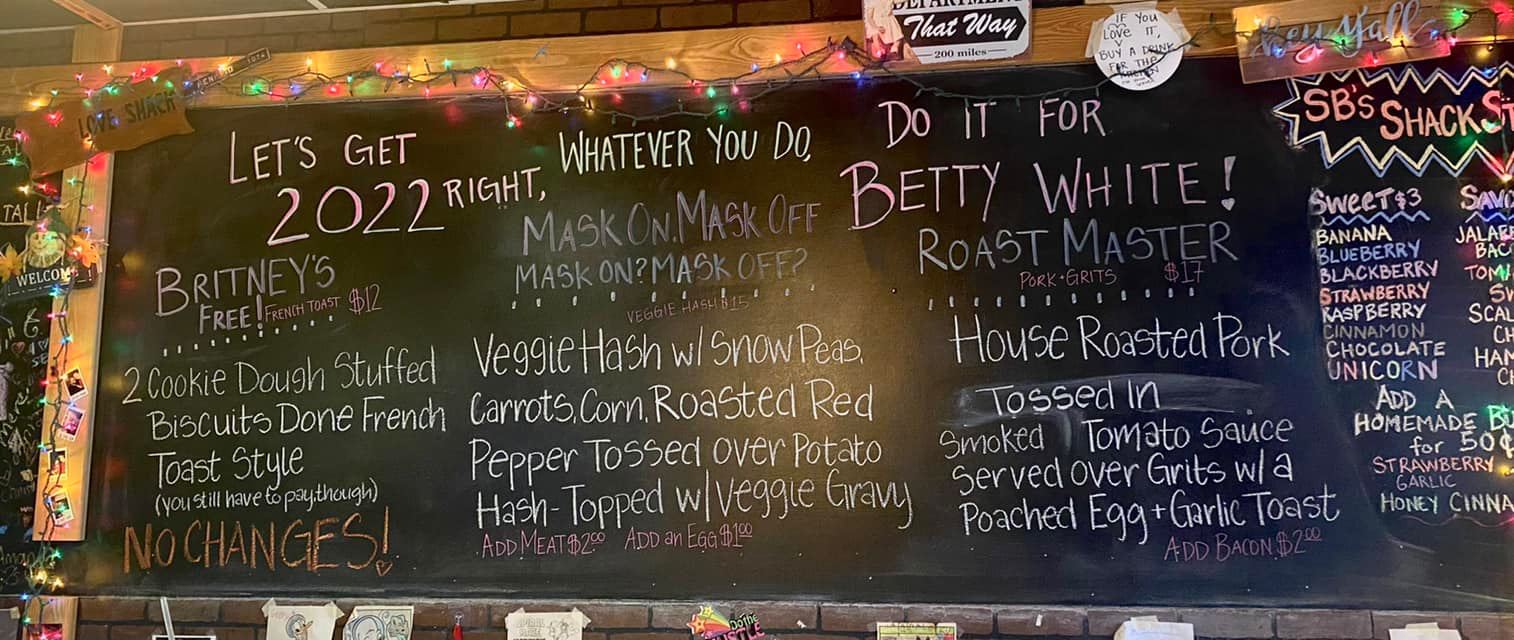 DEPARTMENT
That Way
200 miles
IF YOU
LOVE IT,
BUY A DRINK
FOR THE
KITCHEN
Hey Y'all
LOVE SHACK
WELCOME!
LET'S GET
2022 RIGHT,
WHATEVER YOU DO,
DO IT FOR
BETTY WHITE!
BRITNEY'S
FREE! FRENCH TOAST $12
2 Cookie Dough Stuffed
Biscuits Done French
Toast Style
(you still have to pay though)
NO CHANGES!
MASK ON. MASK OFF
MASK ON? MASK OFF?
VEGGIE HASH $15
Veggie Hash w/ Snow Peas,
Carrots, Corn, Roasted Red
Pepper Tossed over Potato
Hash-Topped w/ Veggie Gravy
ADD MEAT $2.00 ADD an EGG $1.00
ROAST MASTER
PORK + GRITS $17
House Roasted Pork
Tossed In
Smoked Tomato Sauce
Served over Grits w/a
Poached Egg + Garlic Toast
ADD BACON $2.00
SB's SHACK
SWEET $3
BANANA
BLUEBERRY
BLACKBERRY
STRAWBERRY
RASPBERRY
CINNAMON
CHOCOLATE
UNICORN
ADD A
HOMEMADE
for 50¢
STRAWBERRY
GARLIC
HONEY CINNA